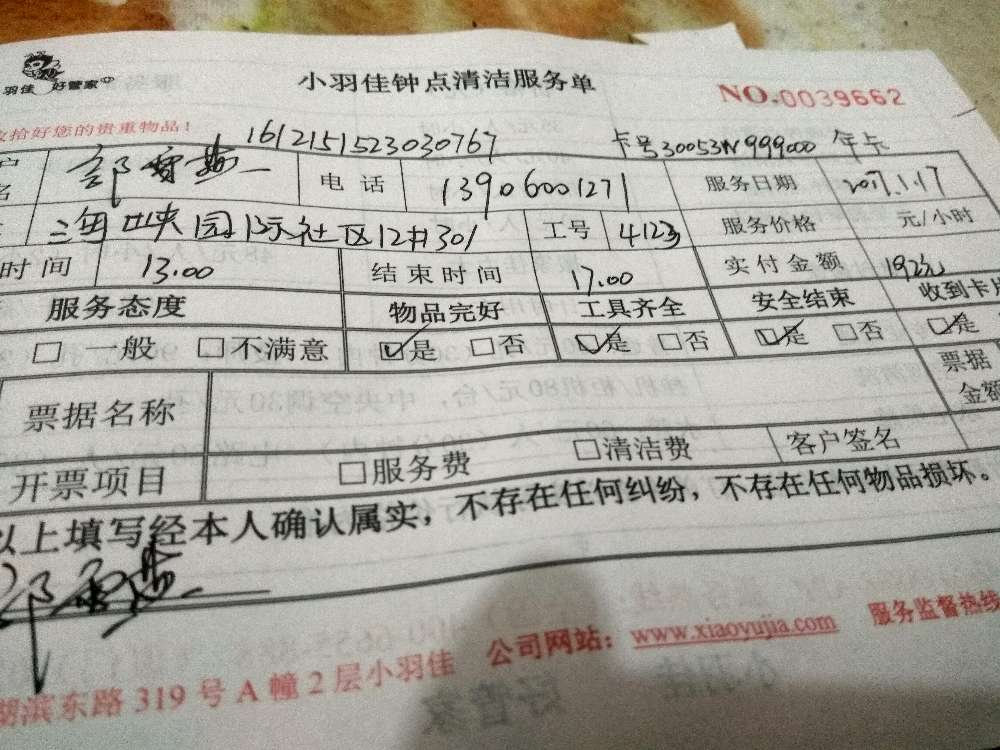 羽佳 好管家
小羽佳钟点清洁服务单
NO.0039662
收拾好您的贵重物品！
1612151523030767
卡号30053W999000 年卡
户名 电话 13906001271 服务日期 2017.1.17
社区12#301 工号 4123 服务价格 元/小时
时间 13.00 结束时间 17.00 实付金额 192元
服务态度 物品完好 工具齐全 安全结束 收到卡片
□一般 □不满意 ☑是 □否 ☑是 □否 ☑是 □否 ☑是
票据名称 票据 金额
开票项目 □服务费 □清洁费 客户签名
以上填写经本人确认属实，不存在任何纠纷，不存在任何物品损坏。
湖滨东路 319 号 A 幢 2 层小羽佳 公司网站：www.xiaoyujia.com 服务监督热线